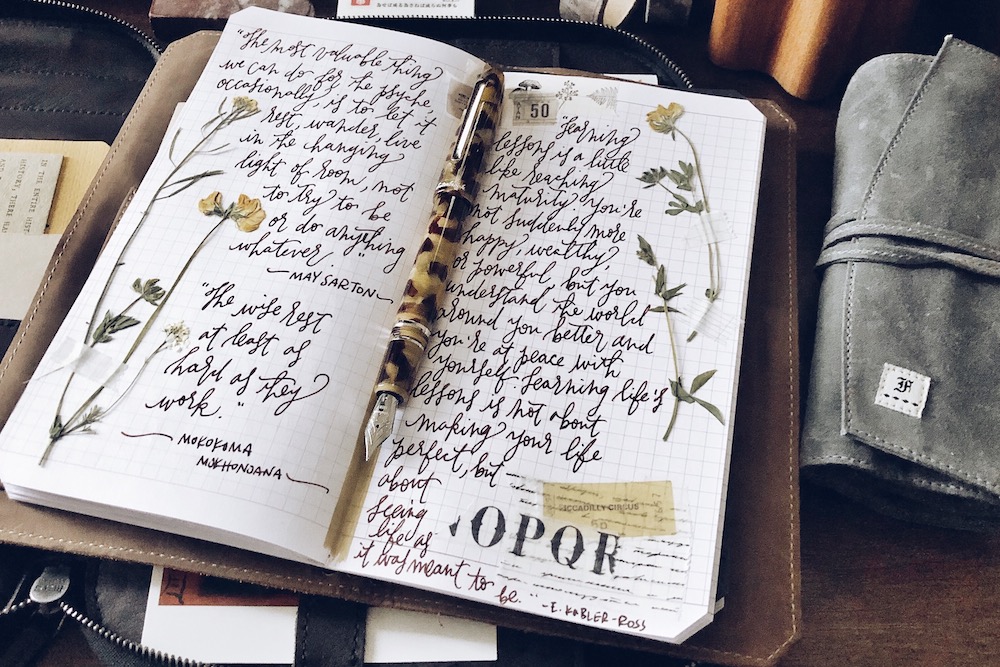 "The most valuable thing
we can do for the psyche
occasionally, is to let it
rest, wander, live
in the changing
light of room, not
to try to be
or do anything
whatever."
MAY SARTON
"The wise rest
at least as
hard as they
work."
MOKOKOMA
MOKHONOANA
50
"Learning
lessons is a little
like reaching
maturity. You're
not suddenly more
happy, wealthy,
or powerful, but you
understand the world
around you better and
you're at peace with
yourself. Learning life's
lessons is not about
making your life
perfect, but
about
seeing
life as
it was meant to be."
-E. KÜBLER-ROSS
PICCADILLY CIRCUS
OPQR
IN THE ENTIRE
HISTORY, THERE
F